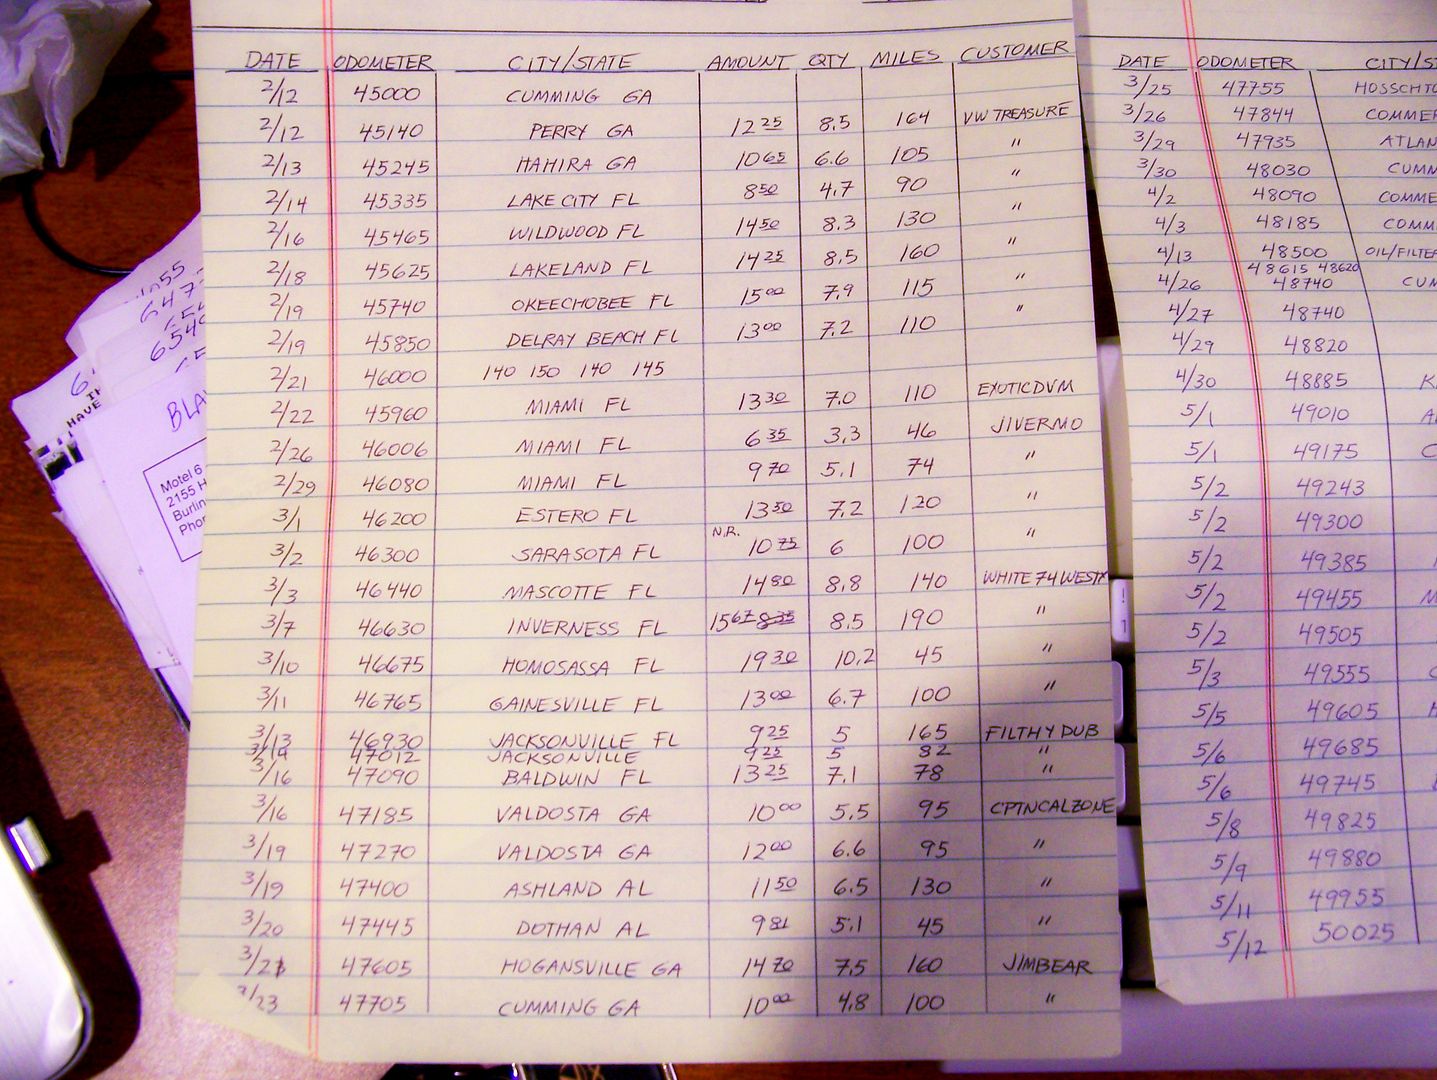 DATE ODOMETER CITY/STATE AMOUNT QTY MILES CUSTOMER
2/12 45000 CUMMING GA
2/12 45140 PERRY GA 12 25 8.5 164 VW TREASURE
2/13 45245 HAHIRA GA 10 65 6.6 105 "
2/14 45335 LAKE CITY FL 8 50 4.7 90 "
2/16 45465 WILDWOOD FL 14 50 8.3 130 "
2/18 45625 LAKELAND FL 14 25 8.5 160 "
2/19 45740 OKEECHOBEE FL 15 00 7.9 115 "
2/19 45850 DELRAY BEACH FL 13 00 7.2 110 "
2/21 46000 140 150 140 145
2/22 45960 MIAMI FL 13 30 7.0 110 EXOTICDVM
2/26 46006 MIAMI FL 6 35 3.3 46 JIVERMO
2/29 46080 MIAMI FL 9 70 5.1 74 "
3/1 46200 ESTERO FL 13 50 7.2 120 "
N.R.
3/2 46300 SARASOTA FL 10 75 6 100 "
3/3 46440 MASCOTTE FL 14 80 8.8 140 WHITE74WESTY
3/7 46630 INVERNESS FL 15 67 8.5 190 "
3/10 46675 HOMOSASSA FL 19 30 10.2 45 "
3/11 46765 GAINESVILLE FL 13 00 6.7 100 "
3/13 46930 JACKSONVILLE FL 9 25 5 165 FILTHY DUB
3/14 47012 JACKSONVILLE 9 25 5 82 "
3/16 47090 BALDWIN FL 13 25 7.1 78 "
3/16 47185 VALDOSTA GA 10 00 5.5 95 CPTNCALZONE
3/19 47270 VALDOSTA GA 12 00 6.6 95 "
3/19 47400 ASHLAND AL 11 50 6.5 130 "
3/20 47445 DOTHAN AL 9 81 5.1 45 "
3/21 47605 HOGANSVILLE GA 14 70 7.5 160 JIMBEAR
3/23 47705 CUMMING GA 10 00 4.8 100 "
DATE ODOMETER CITY/ST
3/25 47755 HOSSCHTO
3/26 47844 COMMER
3/29 47935 ATLAN
3/30 48030 CUMM
4/2 48090 COMME
4/3 48185 COMM
4/13 48500 OIL/FILTER
48615 48620
4/26 48740 CUM
4/27 48740
4/29 48820
4/30 48885 K
5/1 49010 A
5/1 49175 C
5/2 49243
5/2 49300
5/2 49385
5/2 49455 M
5/2 49505
5/3 49555
5/5 49605
5/6 49685
5/6 49745
5/8 49825
5/9 49880
5/11 49955
5/12 50025
HAVE
BLA
Motel 6
2155 H
Burlin
Phon
!
1